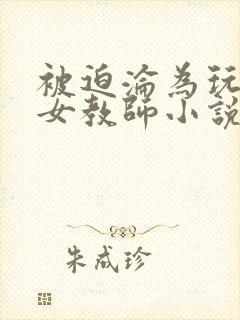 被迫淪為玩
女教師小說
朱成珍